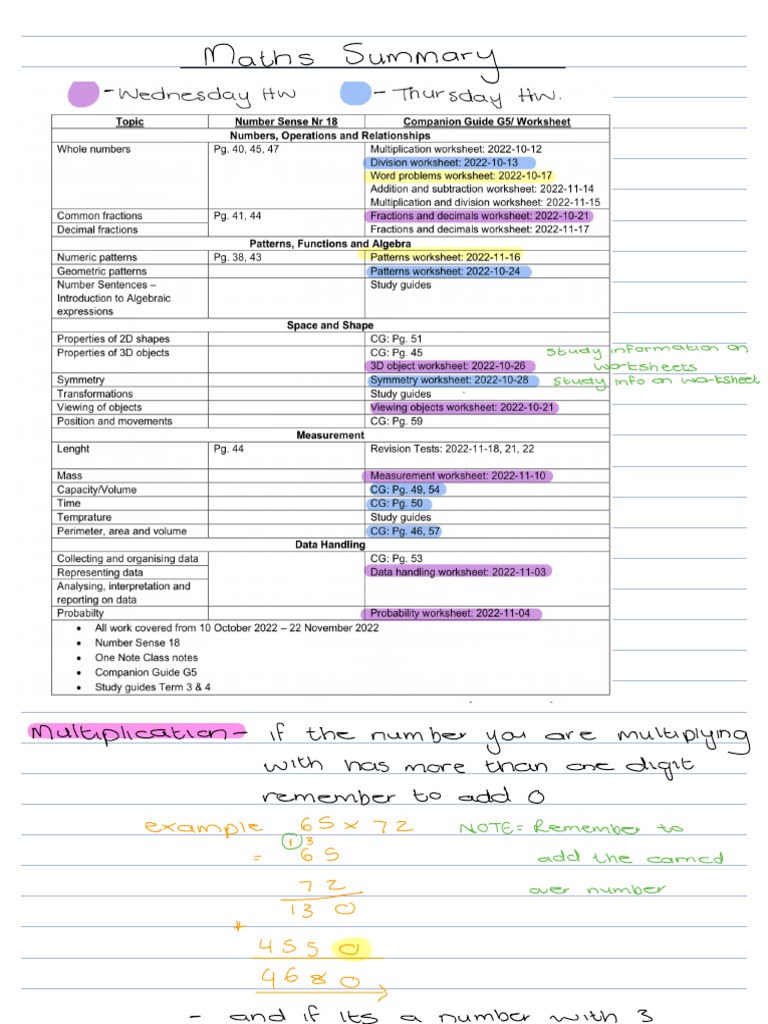 Maths Summary
- Wednesday HW - Thursday HW.
Topic Number Sense Nr 18 Companion Guide G5/ Worksheet
Numbers, Operations and Relationships
Whole numbers Pg. 40, 45, 47 Multiplication worksheet: 2022-10-12
Division worksheet: 2022-10-13
Word problems worksheet: 2022-10-17
Addition and subtraction worksheet: 2022-11-14
Multiplication and division worksheet: 2022-11-15
Common fractions Pg. 41, 44 Fractions and decimals worksheet: 2022-10-21
Decimal fractions Fractions and decimals worksheet: 2022-11-17
Patterns, Functions and Algebra
Numeric patterns Pg. 38, 43 Patterns worksheet: 2022-11-16
Geometric patterns Patterns worksheet: 2022-10-24
Number Sentences – Study guides
Introduction to Algebraic
expressions
Space and Shape
Properties of 2D shapes CG: Pg. 51
Properties of 3D objects CG: Pg. 45 Study information on
3D object worksheet: 2022-10-26 worksheets
Symmetry Symmetry worksheet: 2022-10-28 Study info on worksheet
Transformations Study guides
Viewing of objects Viewing objects worksheet: 2022-10-21
Position and movements CG: Pg. 59
Measurement
Lenght Pg. 44 Revision Tests: 2022-11-18, 21, 22
Mass Measurement worksheet: 2022-11-10
Capacity/Volume CG: Pg. 49, 54
Time CG: Pg. 50
Temprature Study guides
Perimeter, area and volume CG: Pg. 46, 57
Data Handling
Collecting and organising data CG: Pg. 53
Representing data Data handling worksheet: 2022-11-03
Analysing, interpretation and
reporting on data
Probabilty Probability worksheet: 2022-11-04
• All work covered from 10 October 2022 – 22 November 2022
• Number Sense 18
• One Note Class notes
• Companion Guide G5
• Study guides Term 3 & 4
Multiplication - if the number you are multiplying
with has more than one digit
remember to add 0
example 65 x 72 NOTE= Remember to
1 3
= 65 add the carried
72 over number
130
+
4550
4680
- and if its a number with 3